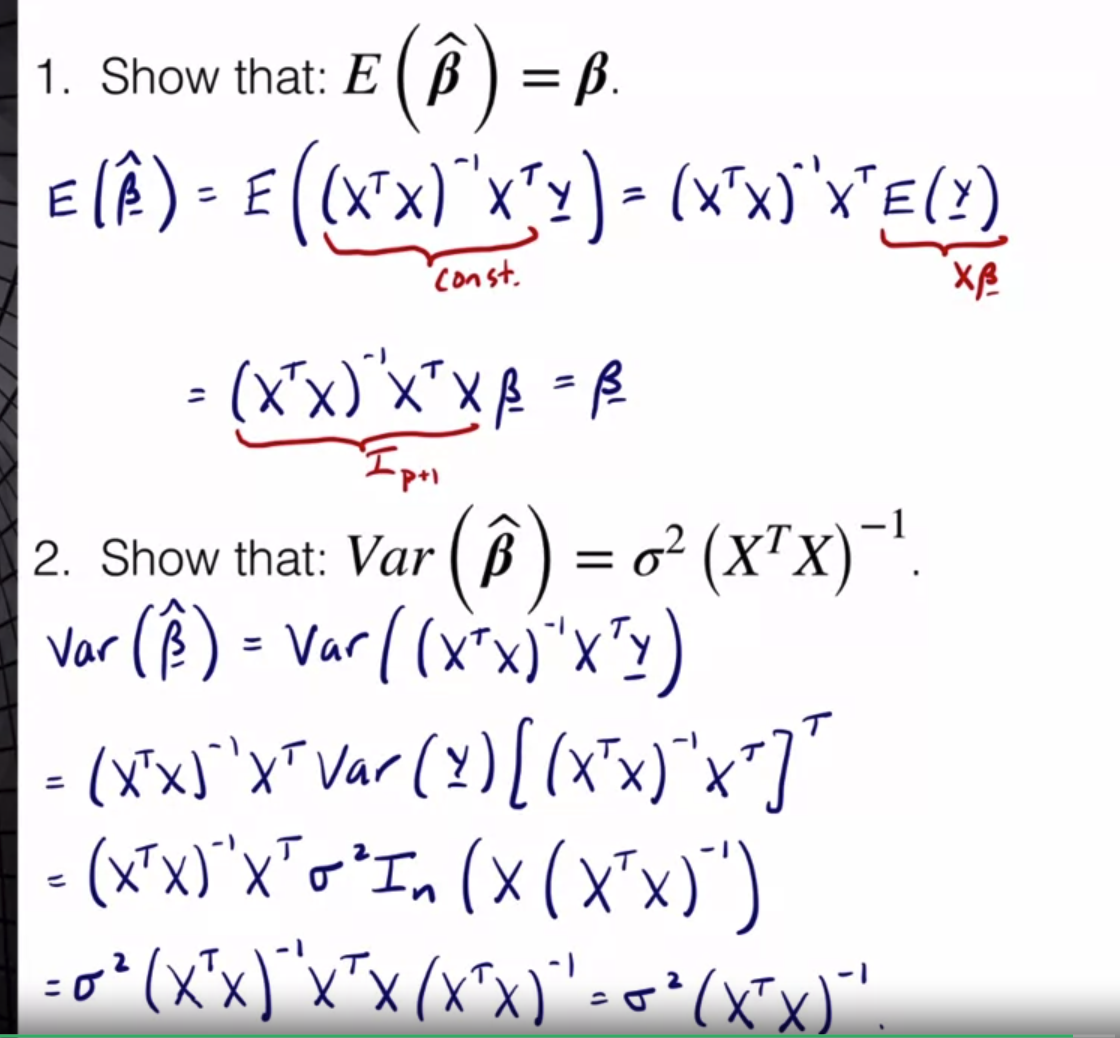 1. Show that: E(β̂) = β.
E(β̂) = E((XᵀX)⁻¹Xᵀy) = (XᵀX)⁻¹XᵀE(y)
const. Xβ
= (XᵀX)⁻¹XᵀXβ = β
I p+1
2. Show that: Var(β̂) = σ²(XᵀX)⁻¹.
Var(β̂) = Var((XᵀX)⁻¹Xᵀy)
= (XᵀX)⁻¹XᵀVar(y)[(XᵀX)⁻¹Xᵀ]ᵀ
= (XᵀX)⁻¹Xᵀσ²Iₙ(X(XᵀX)⁻¹)
= σ²(XᵀX)⁻¹XᵀX(XᵀX)⁻¹ = σ²(XᵀX)⁻¹.